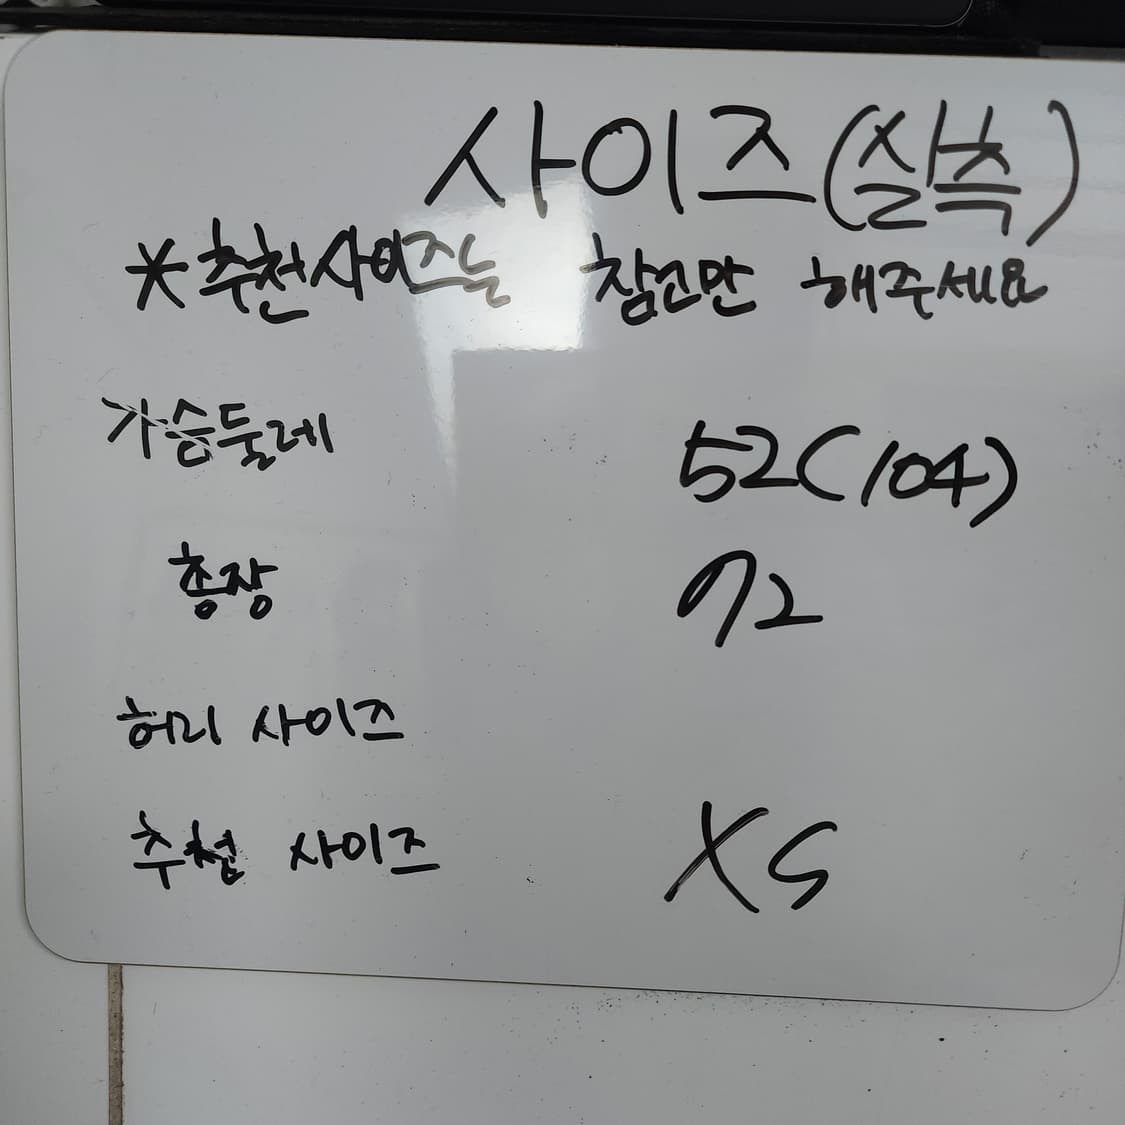 사이즈(실측)
*추천사이즈는 참고만 해주세요
가슴둘레 52(104)
총장 72
허리 사이즈
추천 사이즈 XS